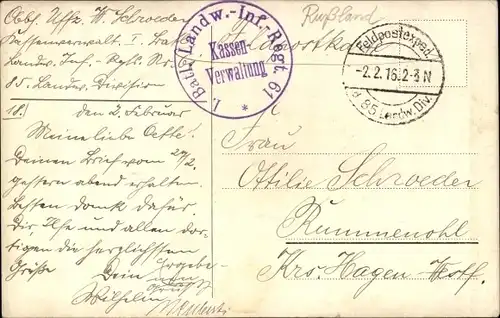 Abs. Uffz. W. Schroeder
Kassenverwalt. I. Batl.
Landw. Inf. Rgts. Nr.
85. Landw. Division
Rußland
Feldpostkarte
I./Batl. Landw.-Inf.-Regt. 61
Kassen-
Verwaltung
*
Feldpostexped.
-2.2.16. 2-3 N
d. 85. Landw. Div.
18.) den 2. Februar
Meine liebe Oette!
Deinen Brief vom 27/2.
gestern abend erhalten.
Besten Dank dafür.
Dir, Ilse und allen dor-
tigen die herzlichsten
Grüße Dein
Wilhelm
Frau
Ottilie Schroeder
Rummenohl
Krs. Hagen-Westf.